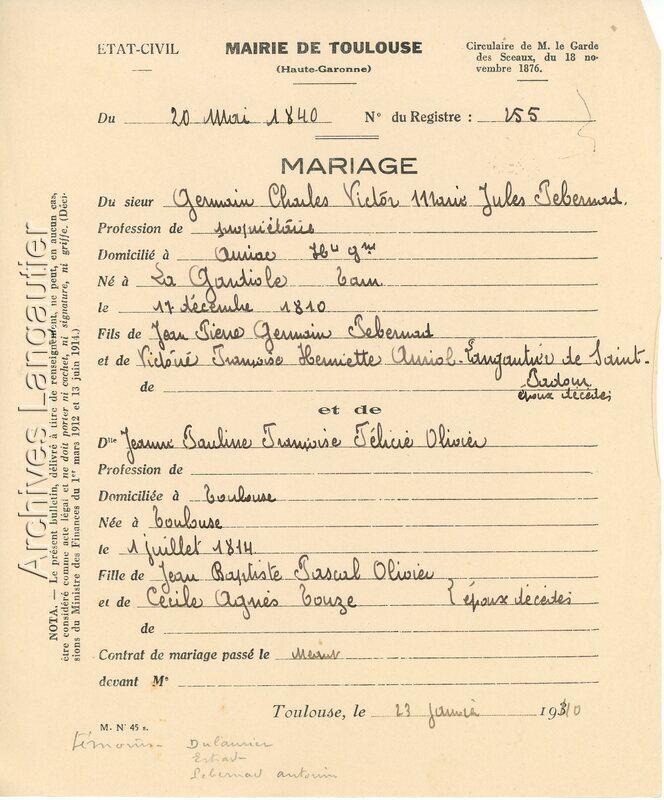 ETAT-CIVIL
MAIRIE DE TOULOUSE
(Haute-Garonne)
Circulaire de M. le Garde
des Sceaux, du 18 no-
vembre 1876.
Du 20 Mai 1840 N° du Registre : 255
MARIAGE
Du sieur Germain Charles Victor Marie Jules Pebernad.
Profession de propriétaire
Domicilié à Auriac Hte Gne
Né à La Gardiole Tarn
le 17 décembre 1810
Fils de Jean Pierre Germain Pebernad
et de Victoire Françoise Henriette Auriol-Langautier de Saint-
de
époux décédés
et de
Dlle Jeanne Pauline Françoise Félicie Olivier
Profession de
Domiciliée à Toulouse
Née à Toulouse
le 1 juillet 1814
Fille de Jean Baptiste Pascal Olivier
et de Cécile Agnès Touze époux décédés
de
Contrat de mariage passé le
devant Me
Toulouse, le 23 janvier 19
M. N° 45 s.
témoins Dulaurier
Pebernad antonin
NOTA. — Le présent bulletin, délivré à titre de renseignement, ne peut, en aucun cas,
être considéré comme acte légal et ne doit porter ni cachet, ni signature, ni griffe. (Déci-
sions du Ministre des Finances du 1er mars 1912 et 13 juin 1914.)
Archives Langautier